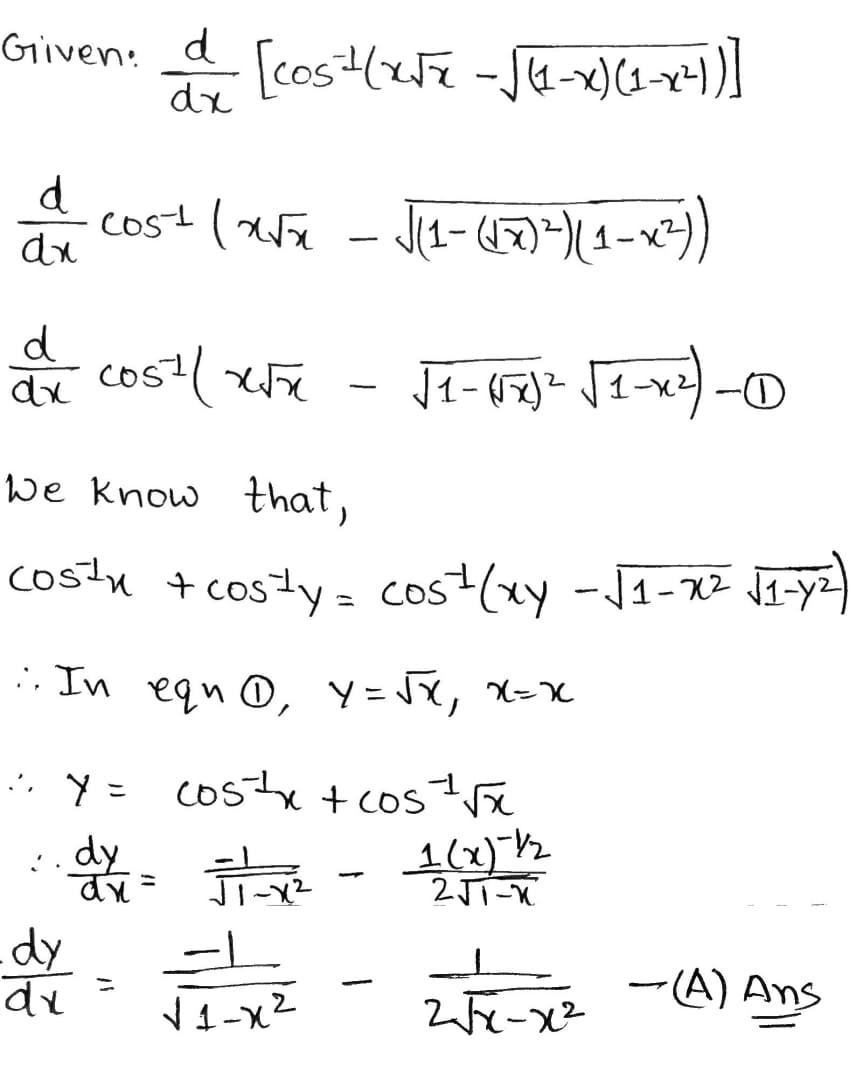 Given: d/dx [cos⁻¹(x√x - √((1-x)(1-x²)))]
d/dx cos⁻¹ (x√x - √((1-(√x)²)(1-x²)))
d/dx cos⁻¹( x√x - √(1-(√x)²) √(1-x²)) -①
We know that,
cos⁻¹x + cos⁻¹y = cos⁻¹(xy - √(1-x²) √(1-y²))
∴ In eqn ①, y = √x, x=x
∴ y = cos⁻¹x + cos⁻¹√x
∴ dy/dx = -1/√(1-x²) - 1(x)^(-1/2)/(2√(1-x))
dy/dx = -1/√(1-x²) - 1/(2√(x-x²)) -(A) Ans